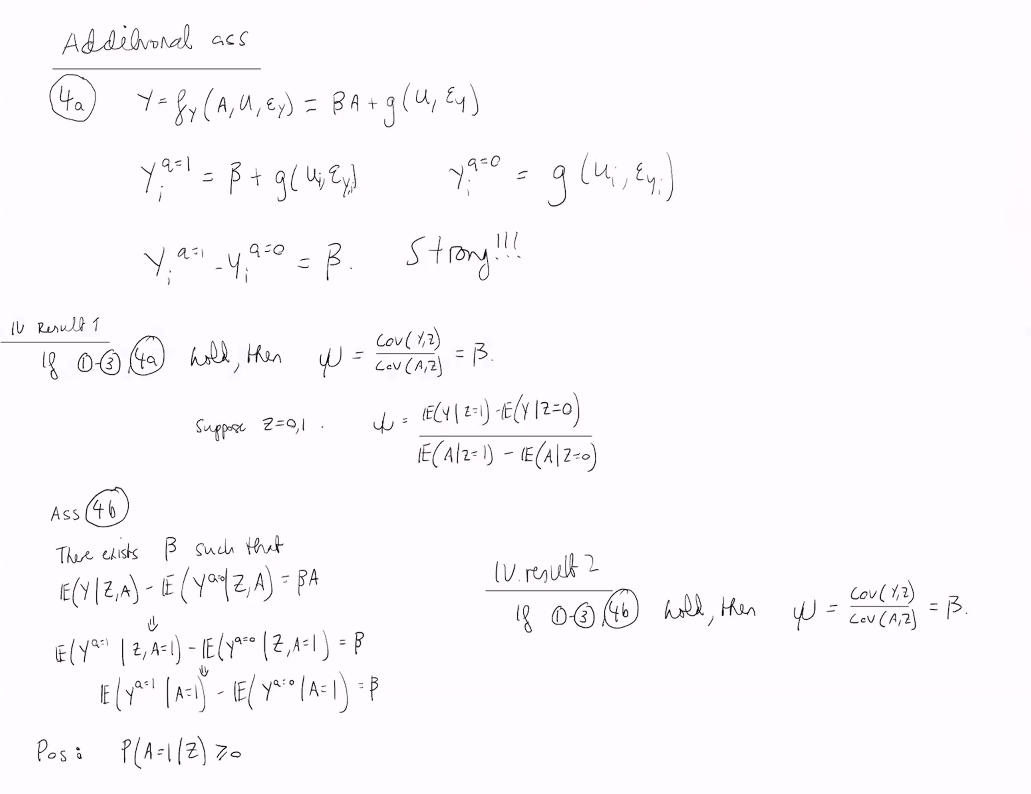 Additional ass
4a Y = f_Y(A, U, ε_Y) = βA + g(U, ε_Y)
Y_i^{a=1} = β + g(U_i, ε_{Y_i}) Y_i^{a=0} = g(U_i, ε_{Y_i})
Y_i^{a=1} - Y_i^{a=0} = β. Strong!!!
IV Result 1
If ①-③, 4a hold, then ψ = Cov(Y,Z) / Cov(A,Z) = β.
Suppose Z=0,1. ψ = (𝔼(Y|Z=1) - 𝔼(Y|Z=0)) / (𝔼(A|Z=1) - 𝔼(A|Z=0))
Ass 4b
There exists β such that
𝔼(Y|Z,A) - 𝔼(Y^{a=0}|Z,A) = βA
⇓
𝔼(Y^{a=1}|Z,A=1) - 𝔼(Y^{a=0}|Z,A=1) = β
⇓
𝔼(Y^{a=1}|A=1) - 𝔼(Y^{a=0}|A=1) = β
Pos: P(A=1|Z) ⩾0
IV. result 2
If ①-③, 4b hold, then ψ = Cov(Y,Z) / Cov(A,Z) = β.